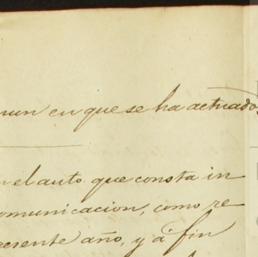 mun en que se ha actuado,
el auto que consta in
comunicacion, como re
presente año, y á fin